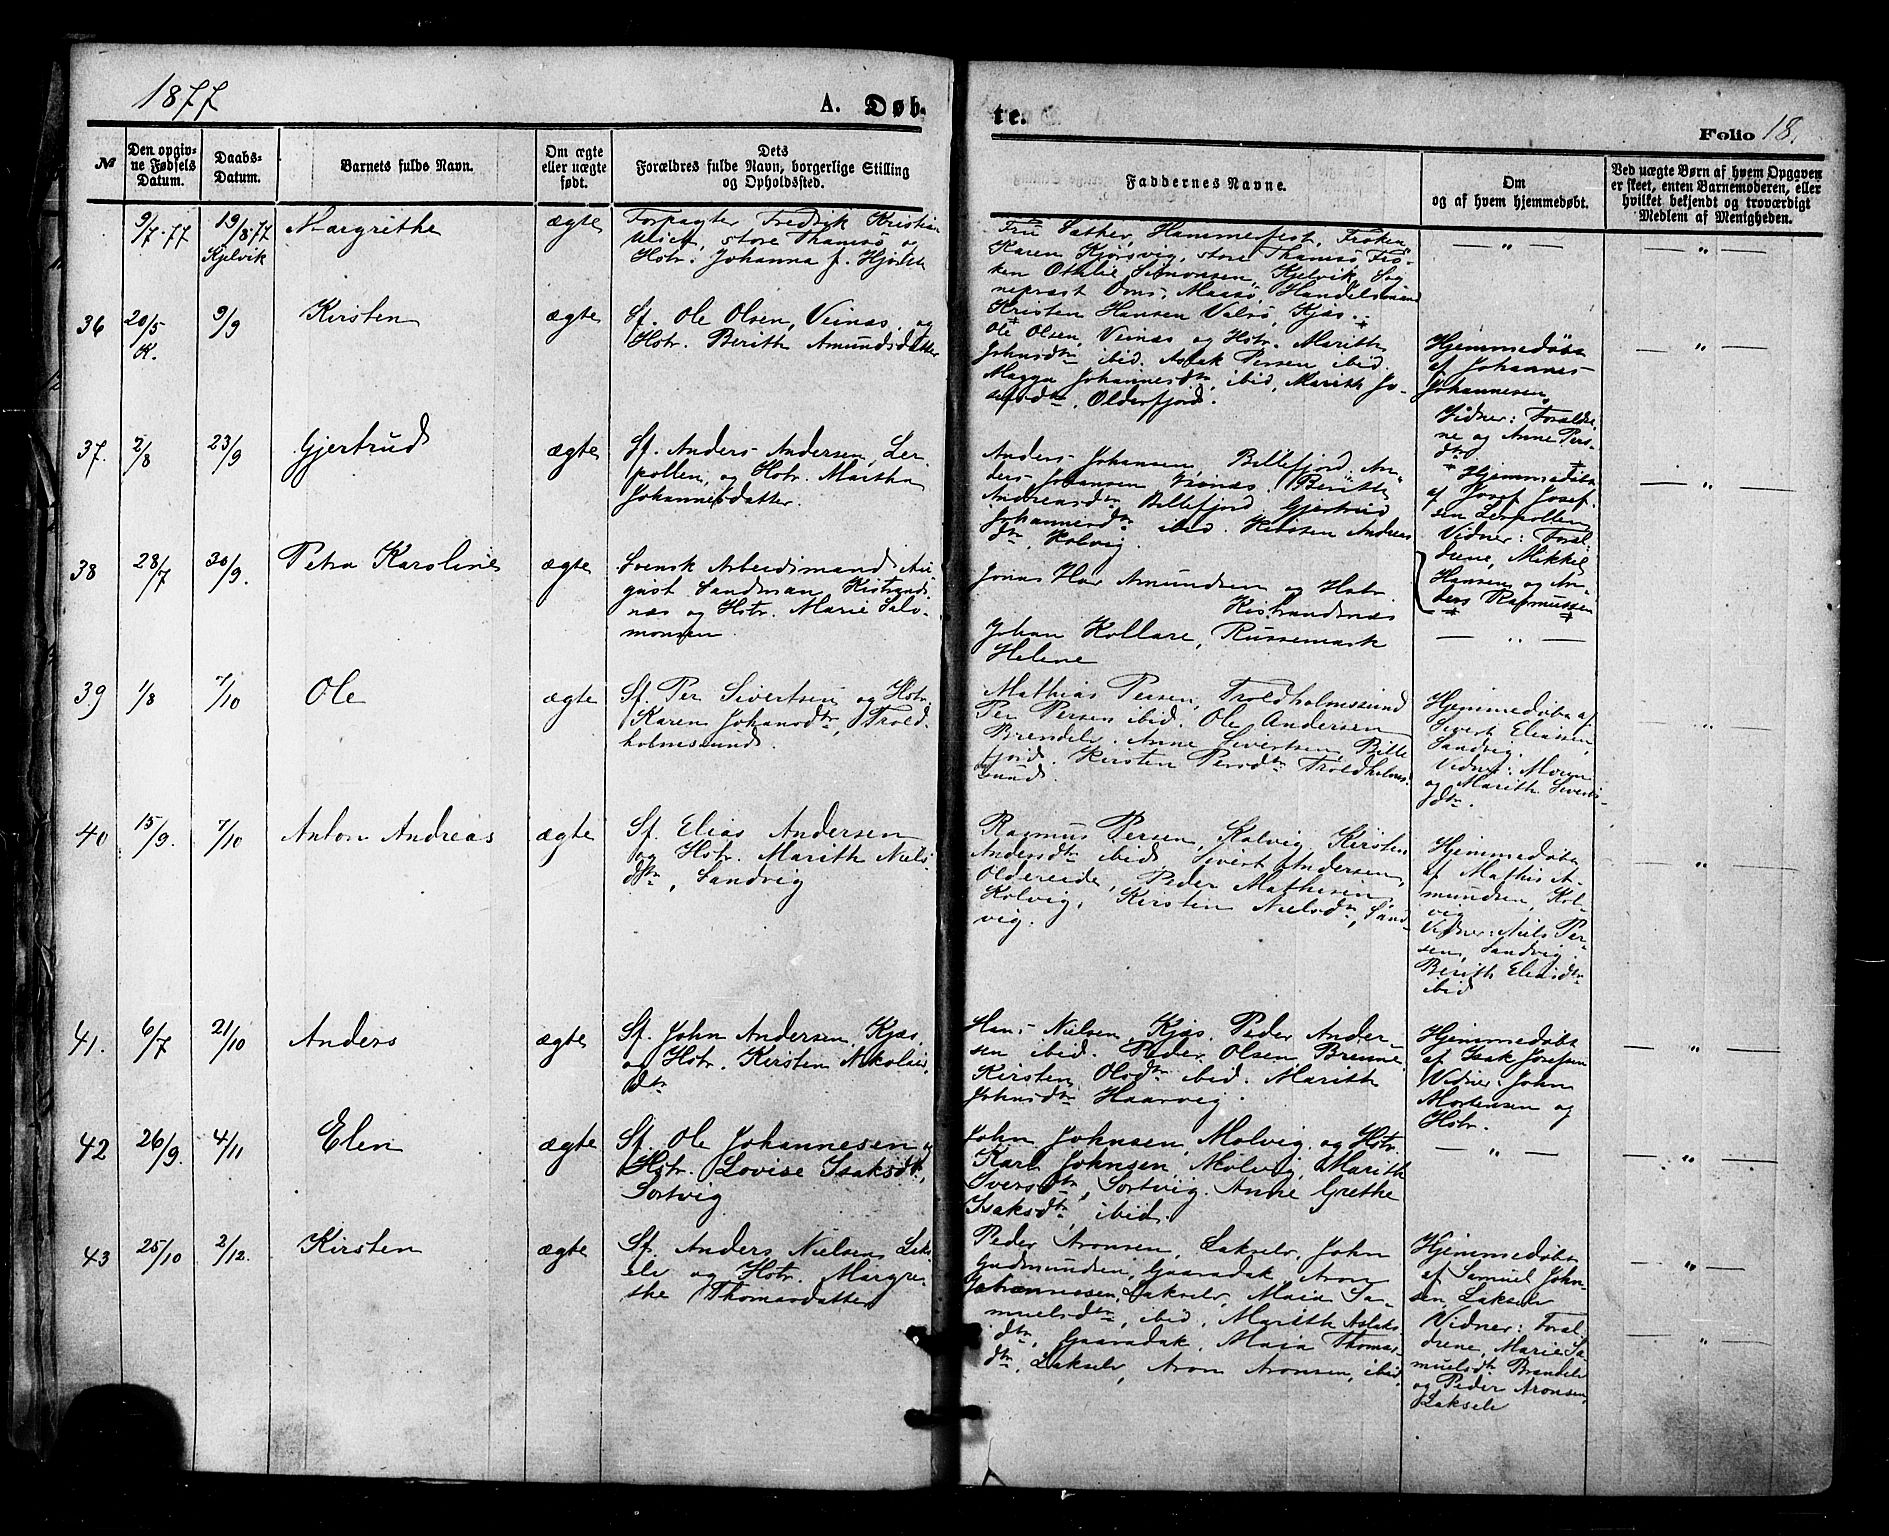 1877
A. Døb-
te.
Folio 18.
№
Den opgiv-
ne Fødsels
Datum.
Daabs-
Datum.
Barnets fulde Navn.
Om ægte
eller uægte
født.
Dets
Forældres fulde Navn, borgerlige Stilling
og Opholdssted.
Faddernes Navne.
Om
og af hvem hjemmedøbt.
Ved uægte Børn af hvem Opgaven
er skeet, enten Barnemoderen, eller
hvilket bekjendt og troværdigt
Medlem af Menigheden.
9/7.77
19/8.77
Kjelvik
Margrethe
ægte
Forpagter Fredrik Kristian
store Thamsø og
Hstr. Johanna f.
Fru Sæther, Hammerfest, Frøken
Karen Kjørsvig, store Thamsø Frø-
ken Othilie Simonsen, Kjelvik Sog
neprest Oms, Maasø, Handelsmand
Kristen Hansen Valsø, Kjæs.
— " —
— " —
36
20/5
K.
9/9
Kirsten
ægte
Sf. Ole Olsen, Veinæs, og
Hstr. Berith Amundsdatter
Ole Olsen, Veinæs og Hstr. Marith
Johnsdtr ibid. Aslak Persen ibid.
Magga Johannesdtr, ibid, Marith Jo-
sefsdtr, Olderfjord.
Hjemmedøbt
af Johannes
Johannesen,
Vidner: Forældre-
ne og Anne Pers-
dtr
— " —
37.
2/8
23/9
Gjertrud
ægte
Sf. Anders Andersen, Ler-
pollen, og Hstr. Martha
Johannesdatter.
Anders Johansen, Billefjord, An-
ders Johansen Berith
Andreasdtr Billefjord, Gjertrud
Johannesdtr ibid. Kirsten Anders
dtr, Kolvig.
Hjemmedøbt
af Josef Josef
sen Lerpollen
Vidner: Foræl-
drene, Mikkel
Hansen og An-
ders Rasmussen
— " —
38
28/7
30/9.
Petra Karoline
ægte
Svensk Arbeidsmand Au-
gust Sandman, Kistrands-
næs og Hstr. Marie Salo-
monsen.
Jonas Amundsen og Hstr.
Kistrandsnæs
Johan Kollare, Russemark
Helene
— " —
39
1/8
7/10
Ole
ægte
Sf. Per Sivertsen og Hstr.
Karen Johansdtr, Trold-
holmesund.
Mathias Persen, Troldholmesund
Per Persen ibid. Ole Andersen
Brendelv. Anne Sivertsen, Bille
fjord. Kirsten Persdtr Troldholme-
sund.
Hjemmedøbt af
Sivert Eliassen,
Sandvig.
Vidner:
og Marith Siverts-
dtr.
— " —
40
15/9.
7/10
Anton Andreas
ægte
Sf. Elias Andersen
og Hstr. Marith Niels
dtr, Sandvig
Rasmus Persen, Kolvig, Kirsten
Andersdtr ibid, Sivert Andersen,
Oldereide, Peder Mathesen,
Kolvig, Kirsten Nielsdtr, Sand-
vig.
Hjemmedøbt
af Mathis A-
mundsen, Kol-
vig
Vidner: Niels Per-
sen, Sandvig.
Berith Eliasdtr
ibid
— " —
41.
6/7
21/10
Anders
ægte
Sf. John Andersen, Kjæs,
og Hstr. Kirsten Nikolais
dtr
Hans Nielsen, Kjæs. Peder Ander-
sen ibid. Peder Olsen Brenne
Kirsten Olsdtr ibid. Marith
Johnsdtr Haarvig.
Hjemmedøbt
af Isak Josefsen
Vidner: John
Mortensen og
Hstr.
— " —
42
26/9.
4/11
Elen
ægte
Sf. Ole Johannesen og
Hstr. Lovise Isaksdtr,
Sortvig
John Johnsen, Molvig, og Hstr.
Karl Johnsen, Molvig, Marith
Iversdtr, Sortvig. Anne Grethe
Isaksdtr, ibid.
— " —
— " —
43
25/10
2/12.
Kirsten
ægte
Sf. Anders Nielsen, Laks
elv og Hstr. Margre-
the Thomasdatter
Peder Aronsen, Lakselv, John
Gudmundsen, Gaaradak, Aron
Johannessen, Lakselv, Maia Sa-
muelsdtr, ibid, Marith Aslaks
dtr, Gaaradak, Maia Thomas-
dtr, Lakselv, Aron Aronsen, ibid.
Hjemmedøbt
af Samuel John-
sen, Lakselv
Vidner: Foræl-
drene, Marie Sa-
muelsdtr Brendelv
og Peder Aronsen,
Lakselv
— " —
— " —